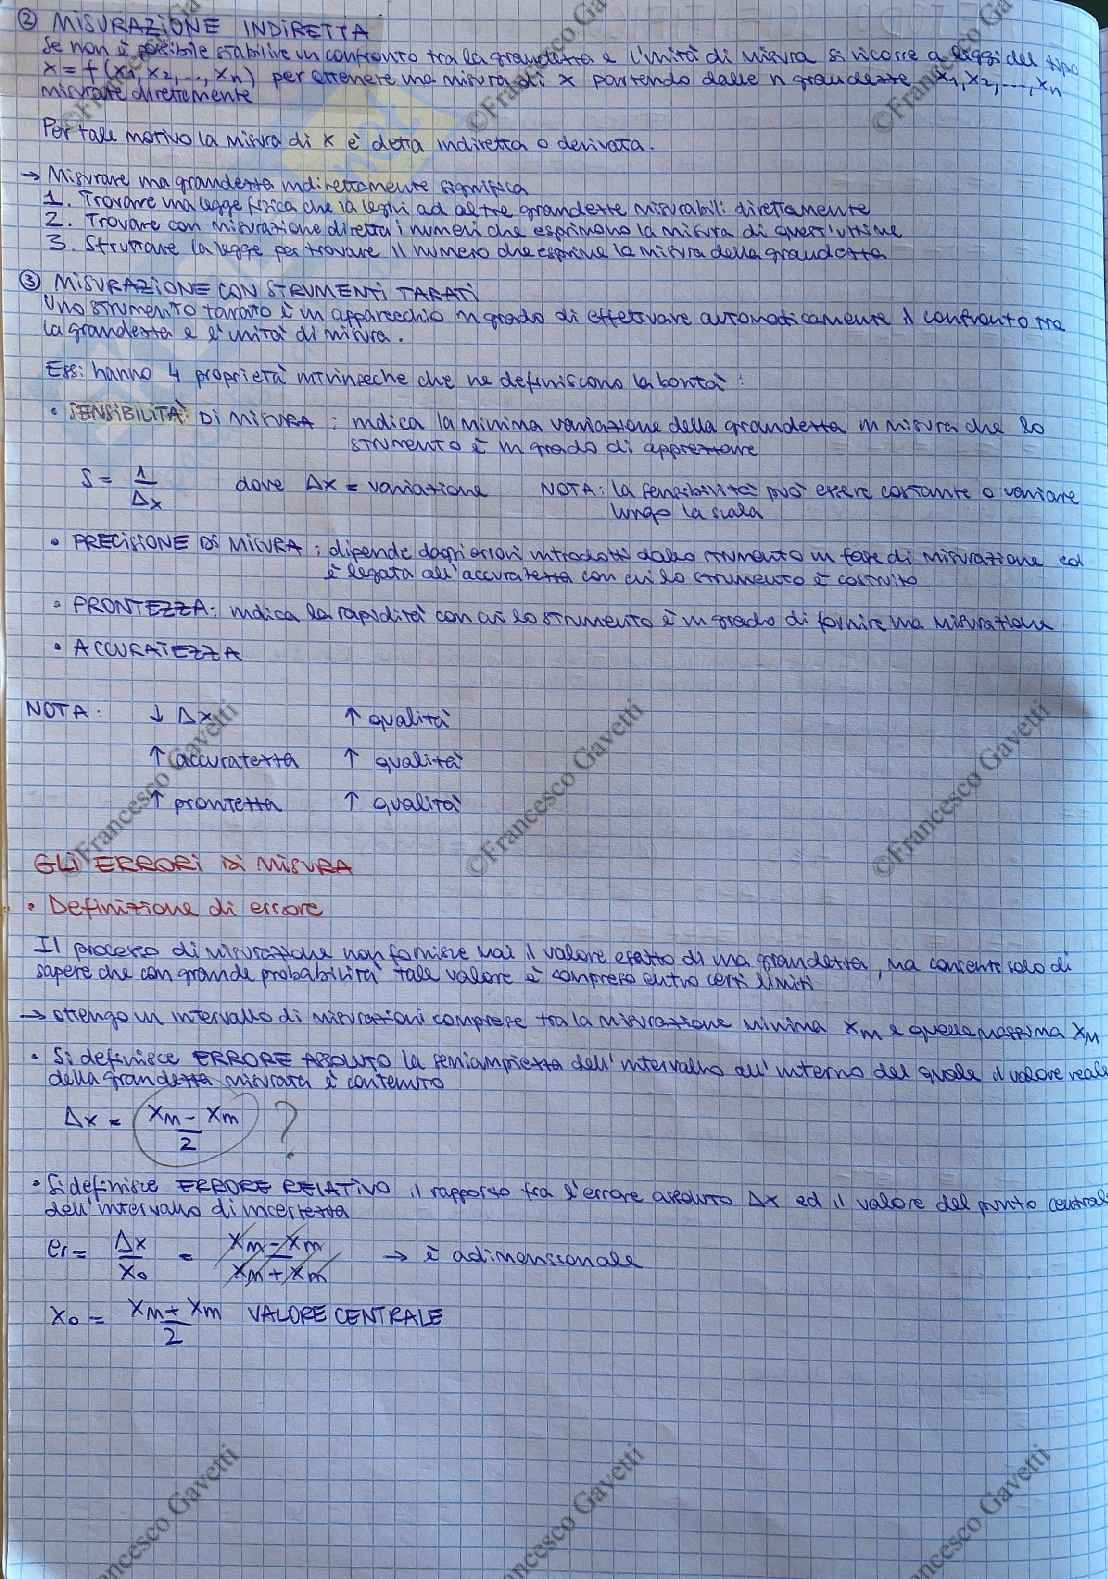 ② MISURAZIONE INDIRETTA
Se non è possibile stabilire un confronto tra la grandezza e l'unità di misura si ricorre a leggi del tipo
x = f(x₁, x₂, ..., xₙ) per ottenere una misura di x partendo dalle n grandezze x₁, x₂, ..., xₙ
misurate direttamente
Per tale motivo la misura di x è detta indiretta o derivata.
→ Misurare una grandezza indirettamente significa
1. Trovare una legge fisica che la leghi ad altre grandezze misurabili direttamente
2. Trovare con misurazione diretta i numeri che esprimono la misura di quest'ultime
3. Sfruttare la legge per trovare il numero che esprime la misura della grandezza
③ MISURAZIONE CON STRUMENTI TARATI
Uno strumento tarato è un apparecchio in grado di effettuare automaticamente il confronto tra
la grandezza e l'unità di misura.
Essi hanno 4 proprietà intrinseche che ne definiscono la bontà:
• SENSIBILITÀ DI MISURA: indica la minima variazione della grandezza in misura che lo
strumento è in grado di apprezzare
S = 1/Δx dove Δx = variazione NOTA: la sensibilità può essere costante o variare
lungo la scala
• PRECISIONE DI MISURA: dipende dagli errori introdotti dallo strumento in fase di misurazione ed
è legata all'accuratezza con cui lo strumento è costruito
• PRONTEZZA: indica la rapidità con cui lo strumento è in grado di fornire una misurazione
• ACCURATEZZA
NOTA: ↓ Δx ↑ qualità
↑ accuratezza ↑ qualità
↑ prontezza ↑ qualità
GLI ERRORI DI MISURA
• Definizione di errore
Il processo di misurazione non fornisce mai il valore esatto di una grandezza, ma consente solo di
sapere che con grande probabilità tale valore è compreso entro certi limiti
→ ottengo un intervallo di misurazioni comprese tra la misurazione minima xm e quella massima xM
• Si definisce ERRORE ASSOLUTO la semiampiezza dell'intervallo all'interno del quale il valore reale
della grandezza misurata è contenuto
Δx = (xM - xm)/2 ?
• Si definisce ERRORE RELATIVO il rapporto fra l'errore assoluto Δx ed il valore del punto centrale
dell'intervallo di incertezza
er = Δx/x₀ = (xM - xm)/(xM + xm) → è adimensionale
x₀ = (xM + xm)/2 VALORE CENTRALE
©Francesco Gavetti
©Francesco Gavetti
©Francesco Gavetti
©Francesco Gavetti
©Francesco Gavetti
©Francesco Gavetti
Francesco Gavetti
Francesco Gavetti
Francesco Gavetti